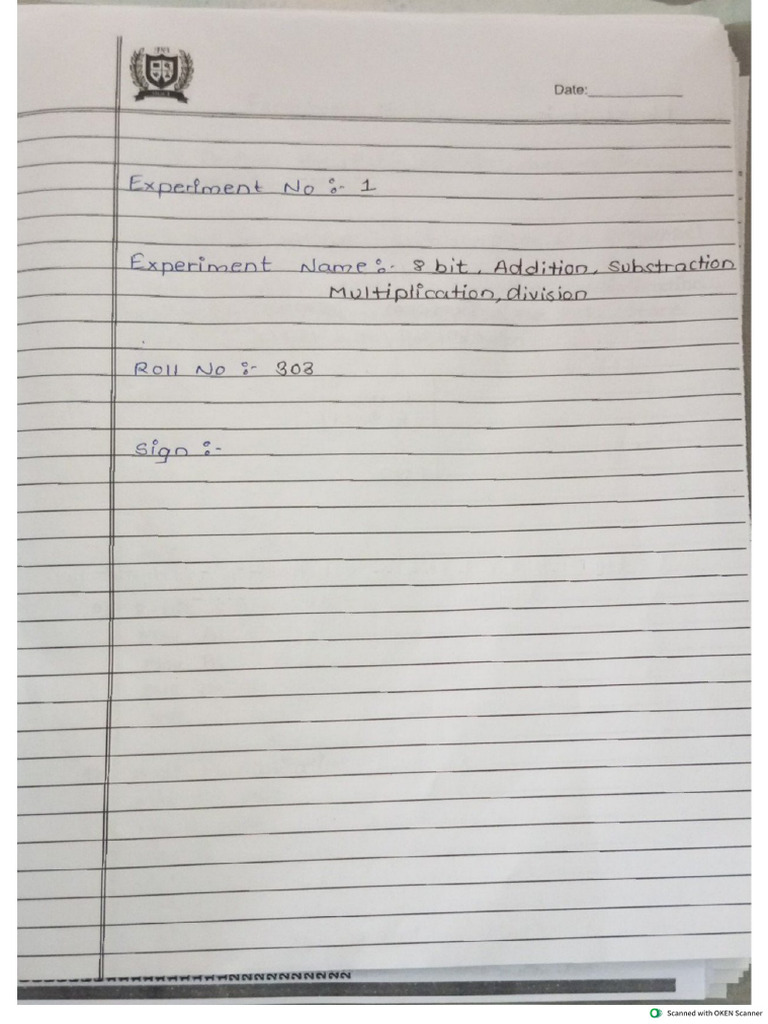 Date:____________
Experiment No :- 1
Experiment Name :- 8 bit, Addition, Substraction
Multiplication, division
Roll No :- 303
Sign :-
Scanned with OKEN Scanner